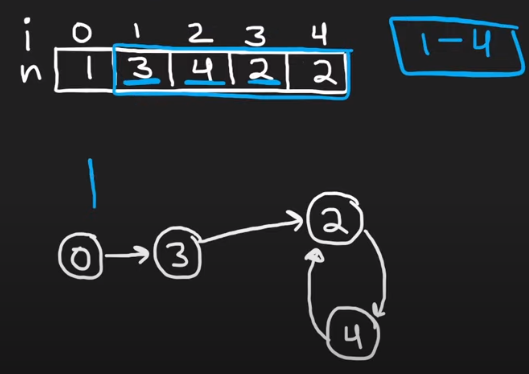 i 0 1 2 3 4
n 1 3 4 2 2
1-4
0 3 2
4